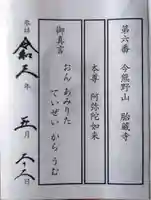 第六番 今熊野山 胎蔵寺
本尊 阿弥陀如来
御真言
おん あみりた
ていぜい から うむ
参拝 令和三年 五月 二十二日